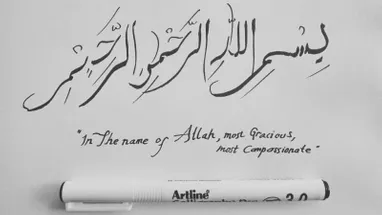 بِسْمِ اللهِ الرَّحْمٰنِ الرَّحِيْمِ
"In The name of Allah, most Gracious,
most Compassionate"
Artline
Calligraphy Pen 3.0